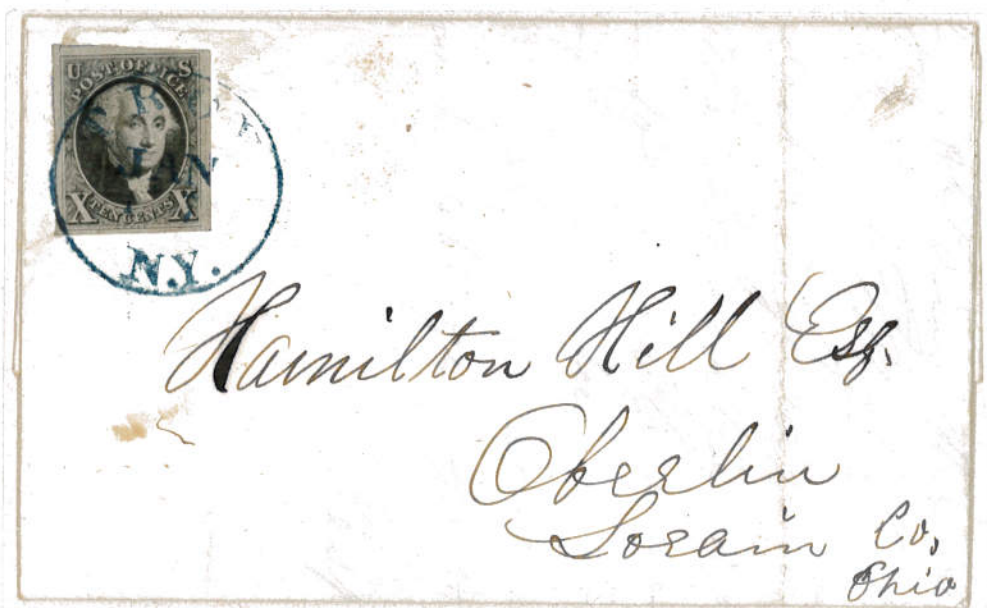 U S
POST OFFICE
X TEN CENTS X
JAN
N.Y.
Hamilton Hill Esq.
Oberlin
Lorain Co,
Ohio